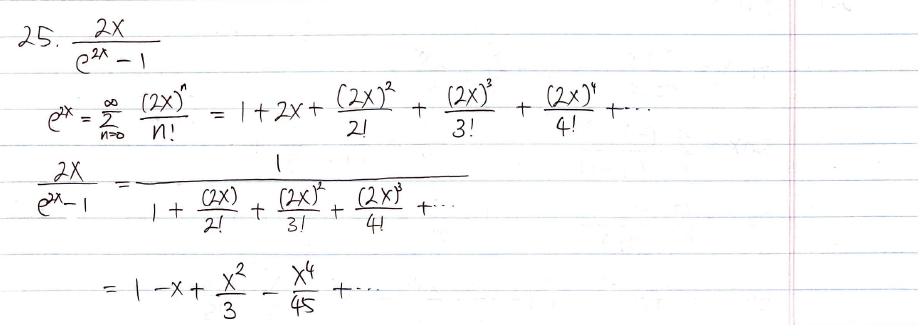 25. 2x/(e^{2x} - 1)
e^{2x} = ∑_{n=0}^{∞} (2x)^n/n! = 1 + 2x + (2x)^2/2! + (2x)^3/3! + (2x)^4/4! + ...
2x/(e^{2x} - 1) = 1/(1 + (2x)/2! + (2x)^2/3! + (2x)^3/4! + ...)
= 1 - x + x^2/3 - x^4/45 + ...